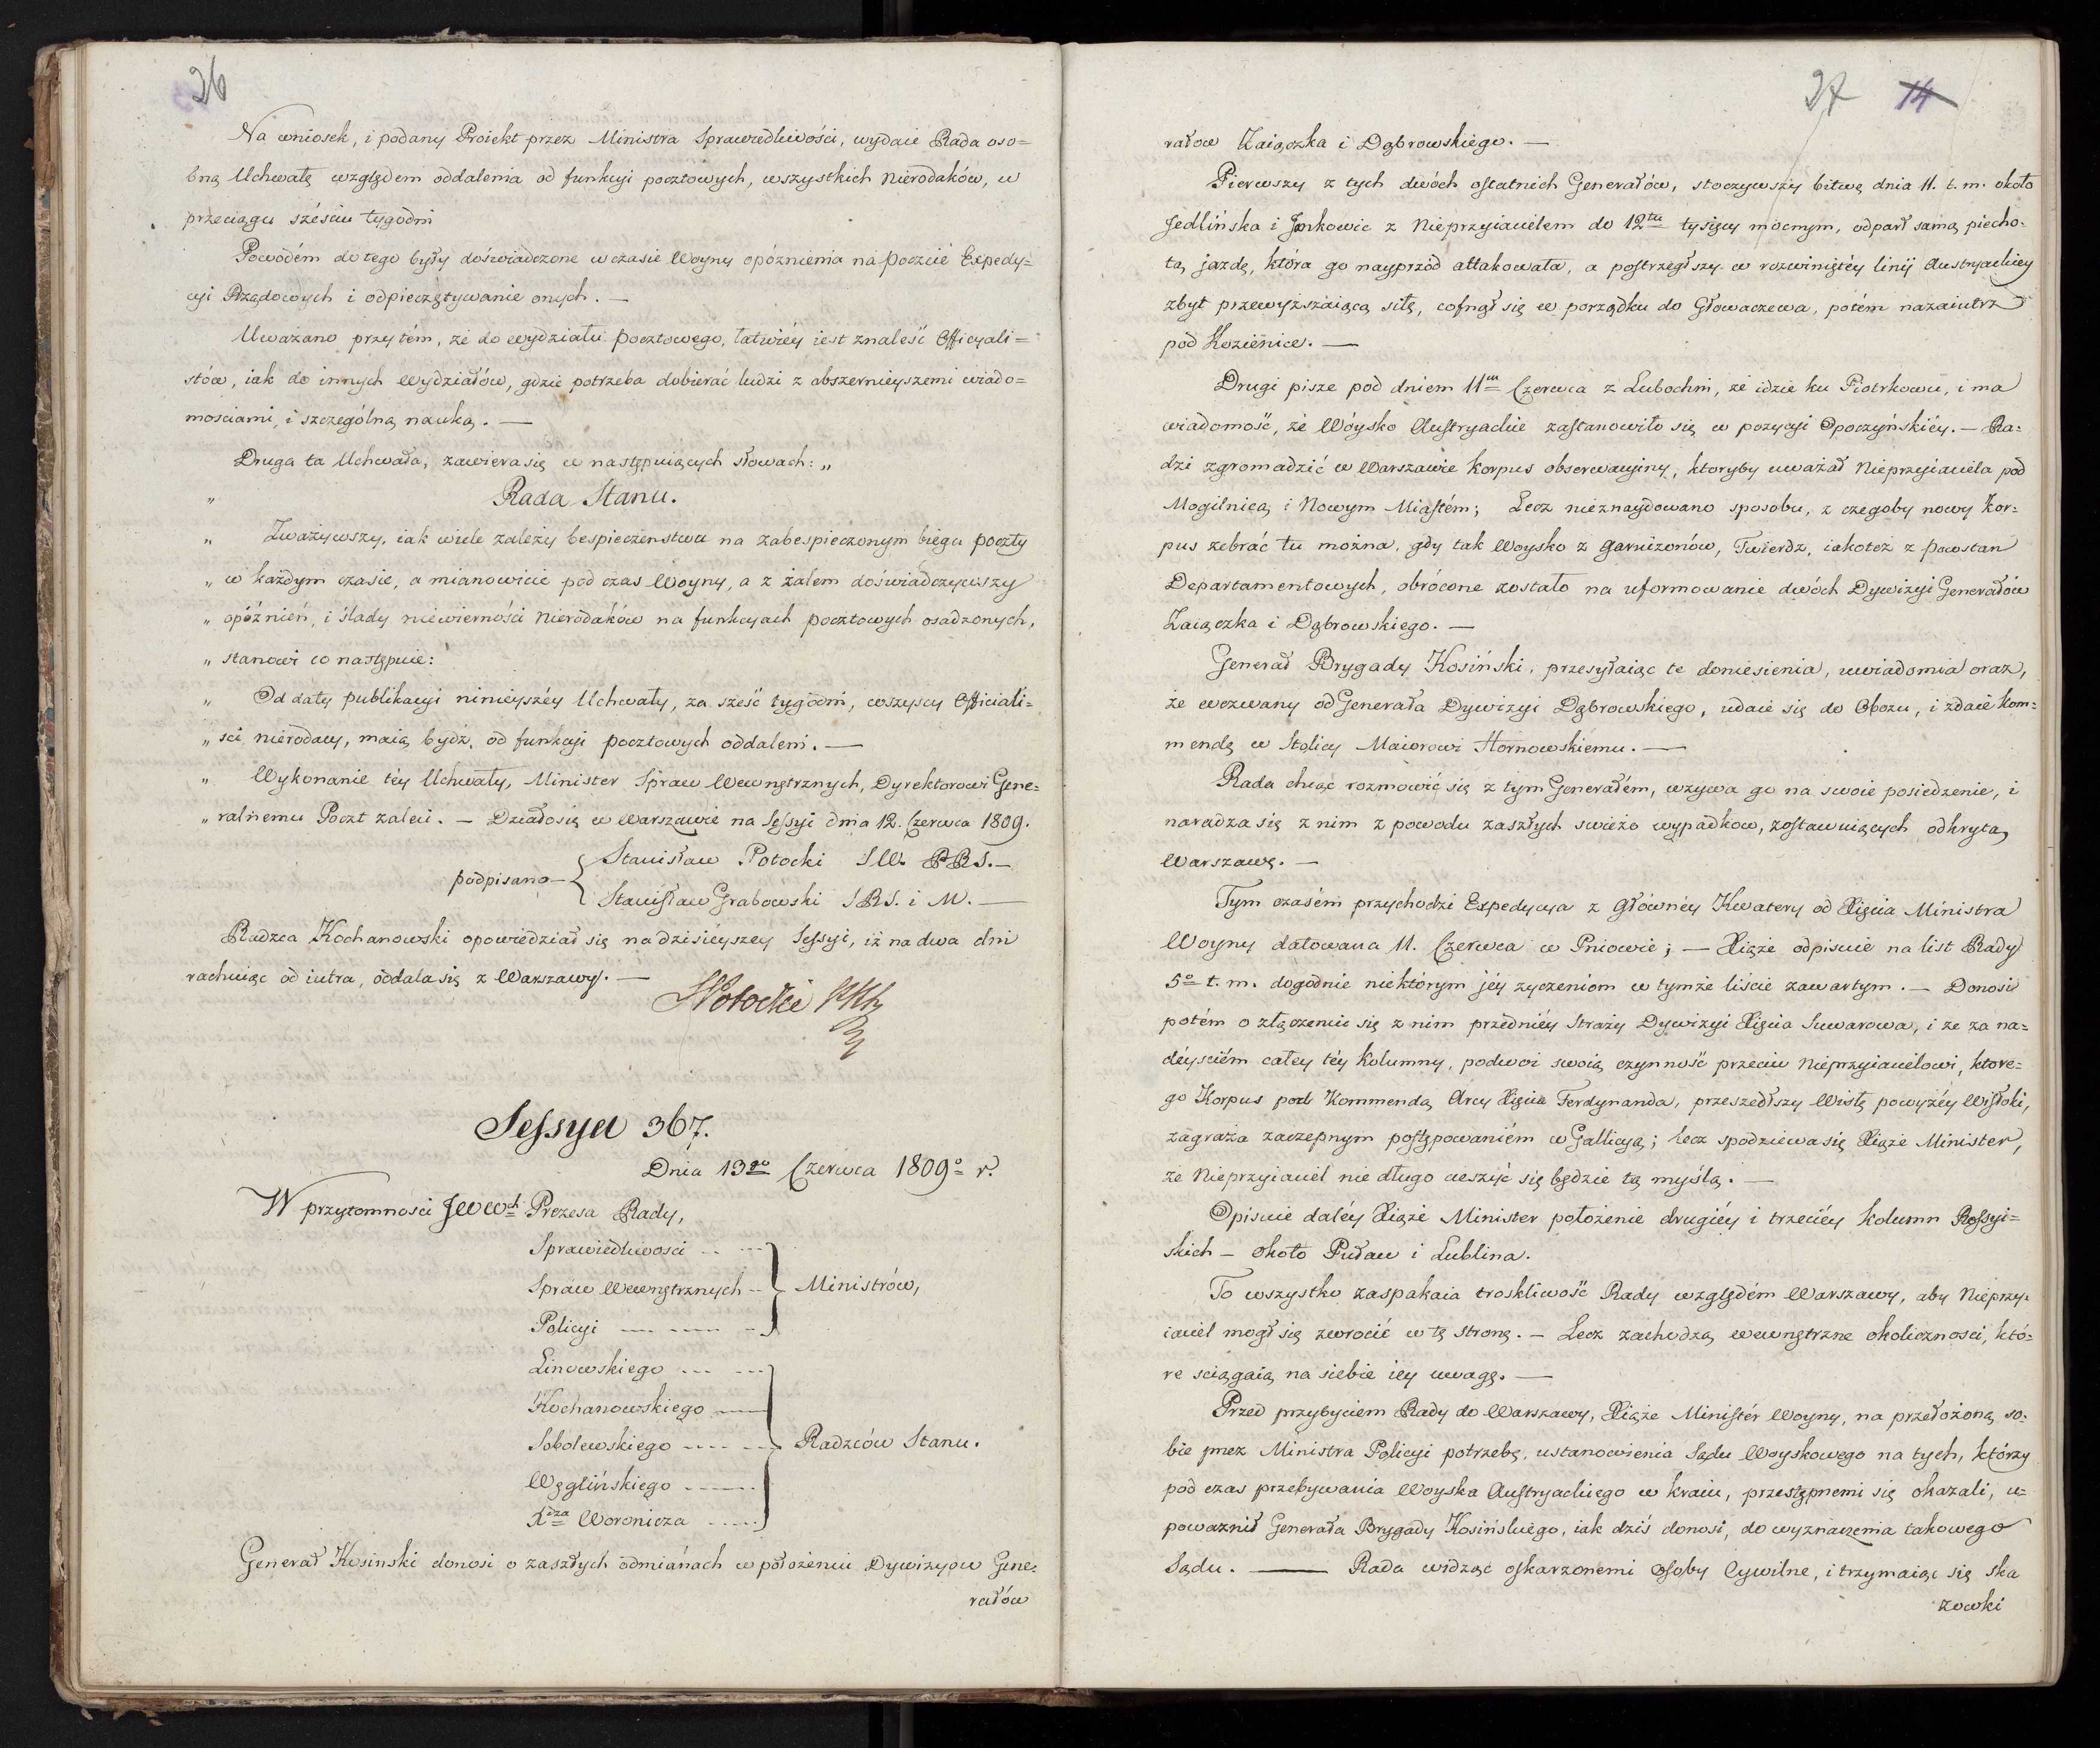 26
Na wniosek, i podany Proiekt przez Ministra Sprawiedliwości, wydaie Rada oso=
bną Uchwałę względem oddalenia od funkcyi pocztowych, wszystkich Nierodaków, w
przeciągu sześciu tygodni
Powodém do tego były doświadczone w czasie Woyny opóznienia na poczcie Expedy=
cyi Rządowych i odpieczętywanie onych. —
Uważano przy tém, że do wydziału pocztowego, łatwiéy iest znaleść Officyali=
stów, iak do innych Wydziałów, gdzie potrzeba dobierać ludzi z obszernieyszemi wiado=
mosciami, i szczególną nauką. —
Druga ta Uchwała, zawiera się w następuiących słowach: „
„ Rada Stanu.
„ Zważywszy, iak wiele zależy bespieczenstwu na zabespieczonym biegu poczty
„ w każdym czasie, a mianowicie pod czas Woyny, a z żalem doświadczywszy
„ opóźnień, i ślady niewierności Nierodaków na funkcyach pocztowych osadzonych,
„ stanowi co następuie:
„ Od daty publikacyi ninieyszéy Uchwały, za sześć tygodni, wszyscy Officiali=
„ sci nierodacy, maią bydź, od funkcyi pocztowych oddaleni. —
„ Wykonanie téy Uchwały, Minister Spraw Wewnętrznych, Dyrektorowi Gene=
„ ralnemu Poczt zaleci. — Działo się w Warszawie na Sessyi dnia 12. Czerwca 1809.
podpisano — { Stanisław Potocki S.W. PRS. —
Stanisław Grabowski SRS. i M. —
Radzca Kochanowski opowiedział się na dzisiéyszey Sessyi, iż na dwa dni
rachuiąc od iutra, oddala się z Warszawy. —
SPotocki
Sessya 367.
Dnia 13go Czerwca 1809o r.
W przytomnosci JWWch Prezesa Rady,
Sprawiedliwosci
Spraw Wewnętrznych } Ministrów,
Policyi
Linowskiego
Kochanowskiego
Sobolewskiego } Radzców Stanu.
Węglińskiego
Xdza Woronicza
Generał Kosinski donosi o zaszłych odmianach w położeniu Dywizyow Gene=
rałów
27 14
rałow Zaiączka i Dąbrowskiego. —
Pierwszy z tych dwóch ostatnich Generałów, stoczywszy bitwę dnia 11. t. m. około
Jedlińska i Jankowic z Nieprzyiacielem do 12tu tysięcy mocnym, odparł samą piecho=
tą jazdę, która go nayprzód attakowała, a postrzegłszy w rozwiniętéy linij Austryackiey
zbyt przewyższaiącą siłę, cofnął się w porządku do Głowaczewa, potém nazaiutrz
pod Kozienice. —
Drugi pisze pod dniem 11m Czerwca z Lubochni, że idzie ku Piotrkowu, i ma
wiadomość, że Wóysko Austryackie zastanowiło się w pozycyi Opoczyńskiéy. — Ra=
dzi zgromadzić w Warszawie korpus obserwacyiny, ktoryby uważał Nieprzyiaciela pod
Mogilnicą i Nowym Miastém; Lecz nieznaydowano sposobu, z czegoby nowy Kor=
pus zebrać tu można, gdy tak Woysko z garnizonów, Twierdz, iakoteż z powstan
Departamentowych, obrócone zostało na uformowanie dwóch Dywizyi Generałów
Zaiączka i Dąbrowskiego. —
Generał Brygady Kosiński, przesyłaiąc te doniesienia, uwiadomia oraz,
że wezwany od Generała Dywizyi Dąbrowskiego, udaie się do Obozu, i zdaie kom=
mendę w Stolicy Maiorowi Hornowskiemu. —
Rada chcąc rozmowić się z tym Generałém, wzywa go na swoie posiedzenie, i
naradza się z nim z powodu zaszłych swieżo wypadkow, zostawuiących odkrytą
Warszawę. —
Tym czasém przychodzi Expedycya z główney Kwatery od Xięcia Ministra
Woyny datowana 11. Czerwca w Pniowie; — Xiąże odpisuie na list Rady
5o t. m. dogodnie niektórym jéy zyczeniom w tymże liście zawartym. — Donosi
potém o złączenie się z nim przedniéy Straży Dywizyi Xięcia Suwarowa, i ze za na=
déysciém całey téy kolumny, podwoi swoią czynność przeciw Nieprzyiacielowi, ktore=
go Korpus pod Kommendą Arcy Xięcia Ferdynanda, przeszedłszy Wisłę powyżéy Wisłoki,
zagraża zaczepnym postępowaniém w Gallicyą; lecz spodziewa się Xiąże Minister,
że Nieprzyiaciel nie długo cieszyć się będzie tą myślą. —
Opisuie daléy Xiąże Minister położenie drugiéy i trzeciéy kolumn Rossyi=
skich — około Puław i Lublina.
To wszystko zaspakaia troskliwość Rady względém Warszawy, aby Nieprzy=
iaciel mogł się zwrocić w tę stronę. — Lecz zachodzą wewnętrzne okoliczności, któ=
re sciągaią na siebie iey uwagę. —
Przed przybyciem Rady do Warszawy, Xiąże Ministér Woyny, na przełożoną so=
bie przez Ministra Policyi potrzebę, ustanowienia Sądu Woyskowego na tych, którzy
pod czas przebywania Woyska Austryackiego w kraiu, przestępnemi się okazali, u=
poważnił Generała Brygady Kosińskiego, iak dziś donosi, do wyznaczenia takowego
Sądu. — Rada widząc oskarzonemi Osoby Cywilne, i trzymaiąc się ska
zowki